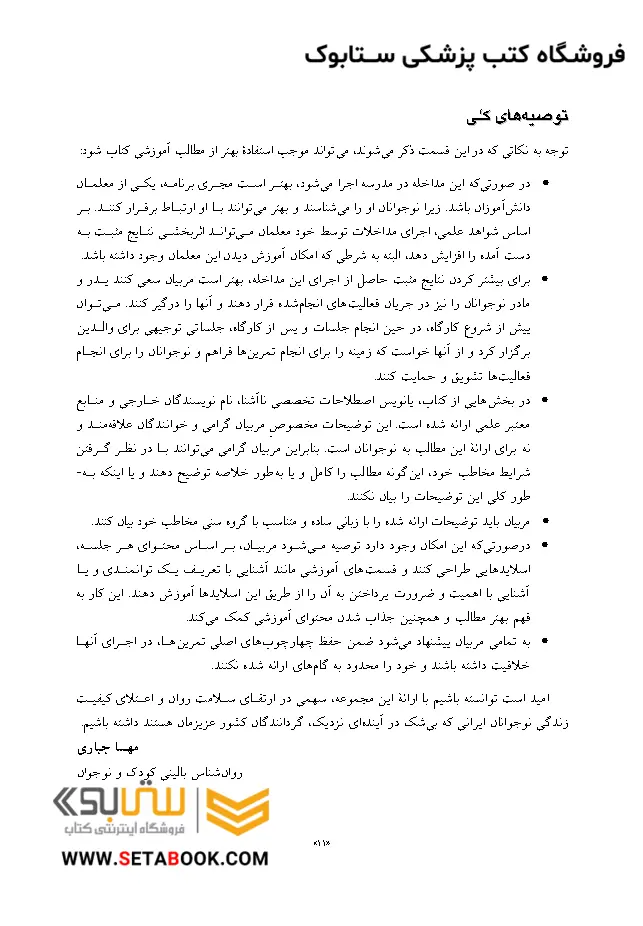 فروشگاه کتب پزشکی ستابوک
توصیه‌های کلی
توجه به نکاتی که در این قسمت ذکر می‌شوند، می‌تواند موجب استفادهٔ بهتر از مطالب آموزشی کتاب شود:
• در صورتی‌که این مداخله در مدرسه اجرا می‌شود، بهتر است مجری برنامه، یکی از معلمان
دانش‌آموزان باشد. زیرا نوجوانان او را می‌شناسند و بهتر می‌توانند با او ارتباط برقرار کنند. بر
اساس شواهد علمی، اجرای مداخلات توسط خود معلمان می‌تواند اثربخشی نتایج مثبت به
دست آمده را افزایش دهد، البته به شرطی که امکان آموزش دیدن این معلمان وجود داشته باشد.
• برای بیشتر کردن نتایج مثبت حاصل از اجرای این مداخله، بهتر است مربیان سعی کنند پدر و
مادر نوجوانان را نیز در جریان فعالیت‌های انجام‌شده قرار دهند و آنها را درگیر کنند. می‌توان
پیش از شروع کارگاه، در حین انجام جلسات و پس از کارگاه، جلساتی توجیهی برای والدین
برگزار کرد و از آنها خواست که زمینه را برای انجام تمرین‌ها فراهم و نوجوانان را برای انجام
فعالیت‌ها تشویق و حمایت کنند.
• در بخش‌هایی از کتاب، پانویس اصطلاحات تخصصی ناآشنا، نام نویسندگان خارجی و منابع
معتبر علمی ارائه شده است. این توضیحات مخصوصِ مربیان گرامی و خوانندگان علاقه‌مند و
نه برای ارائهٔ این مطالب به نوجوانان است. بنابراین مربیان گرامی می‌توانند با در نظر گرفتن
شرایط مخاطب خود، این‌گونه مطالب را کامل و یا به‌طور خلاصه توضیح دهند و یا اینکه به-
طور کلی این توضیحات را بیان نکنند.
• مربیان باید توضیحات ارائه شده را با زبانی ساده و متناسب با گروه سنی مخاطب خود بیان کنند.
• درصورتی‌که این امکان وجود دارد توصیه می‌شود مربیان، بر اساس محتوای هر جلسه،
اسلایدهایی طراحی کنند و قسمت‌های آموزشی مانند آشنایی با تعریف یک توانمندی و یا
آشنایی با اهمیت و ضرورت پرداختن به آن را از طریق این اسلایدها آموزش دهند. این کار به
فهم بهتر مطالب و همچنین جذاب شدن محتوای آموزشی کمک می‌کند.
• به تمامی مربیان پیشنهاد می‌شود ضمن حفظ چهارچوب‌های اصلی تمرین‌ها، در اجرای آنها
خلاقیت داشته باشند و خود را محدود به گام‌های ارائه شده نکنند.
امید است توانسته باشیم با ارائهٔ این مجموعه، سهمی در ارتقای سلامت روان و اعتلای کیفیت
زندگی نوجوانان ایرانی که بی‌شک در آینده‌ای نزدیک، گردانندگان کشور عزیزمان هستند داشته باشیم.
مهسا جباری
روان‌شناس بالینی کودک و نوجوان
ستابوک
فروشگاه اینترنتی کتاب
WWW.SETABOOK.COM
«۱۱»